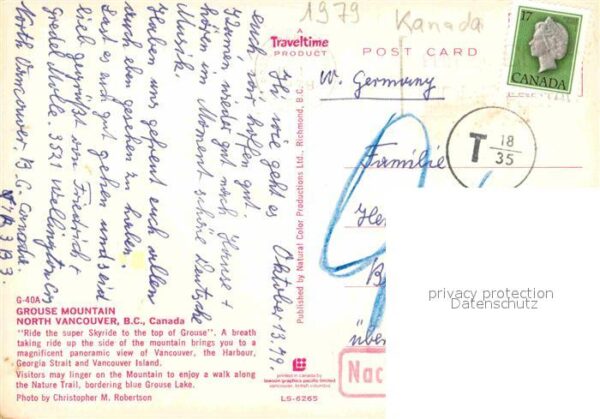 1979 Kanada
A
Traveltime
PRODUCT
POST CARD
17
CANADA
W. Germany
T 18
35
Familie
über
Nac
privacy protection
Datenschutz
Oktober 13.79.
Ihr, wie geht es
euch, wir hoffen gut.
Kamen wieder gut nach Hause +
hören im Moment schöne Deutsche
Musik.
Haben uns gefreut euch allen
auch eben gesehen zu haben.
Last es euch gut gehen und seid
lieb gegrüßt von Friedrich +
3521 Wellington Cr
North Vancouver, B.C. Canada.
Published by Natural Color Productions Ltd., Richmond, B.C.
G-40A
GROUSE MOUNTAIN
NORTH VANCOUVER, B.C., Canada
"Ride the super Skyride to the top of Grouse". A breath
taking ride up the side of the mountain brings you to a
magnificent panoramic view of Vancouver, the Harbour,
Georgia Strait and Vancouver Island.
Visitors may linger on the Mountain to enjoy a walk along
the Nature Trail, bordering blue Grouse Lake.
Photo by Christopher M. Robertson
printed in canada by
lawson graphics pacific limited
vancouver, british columbia
LS-6265